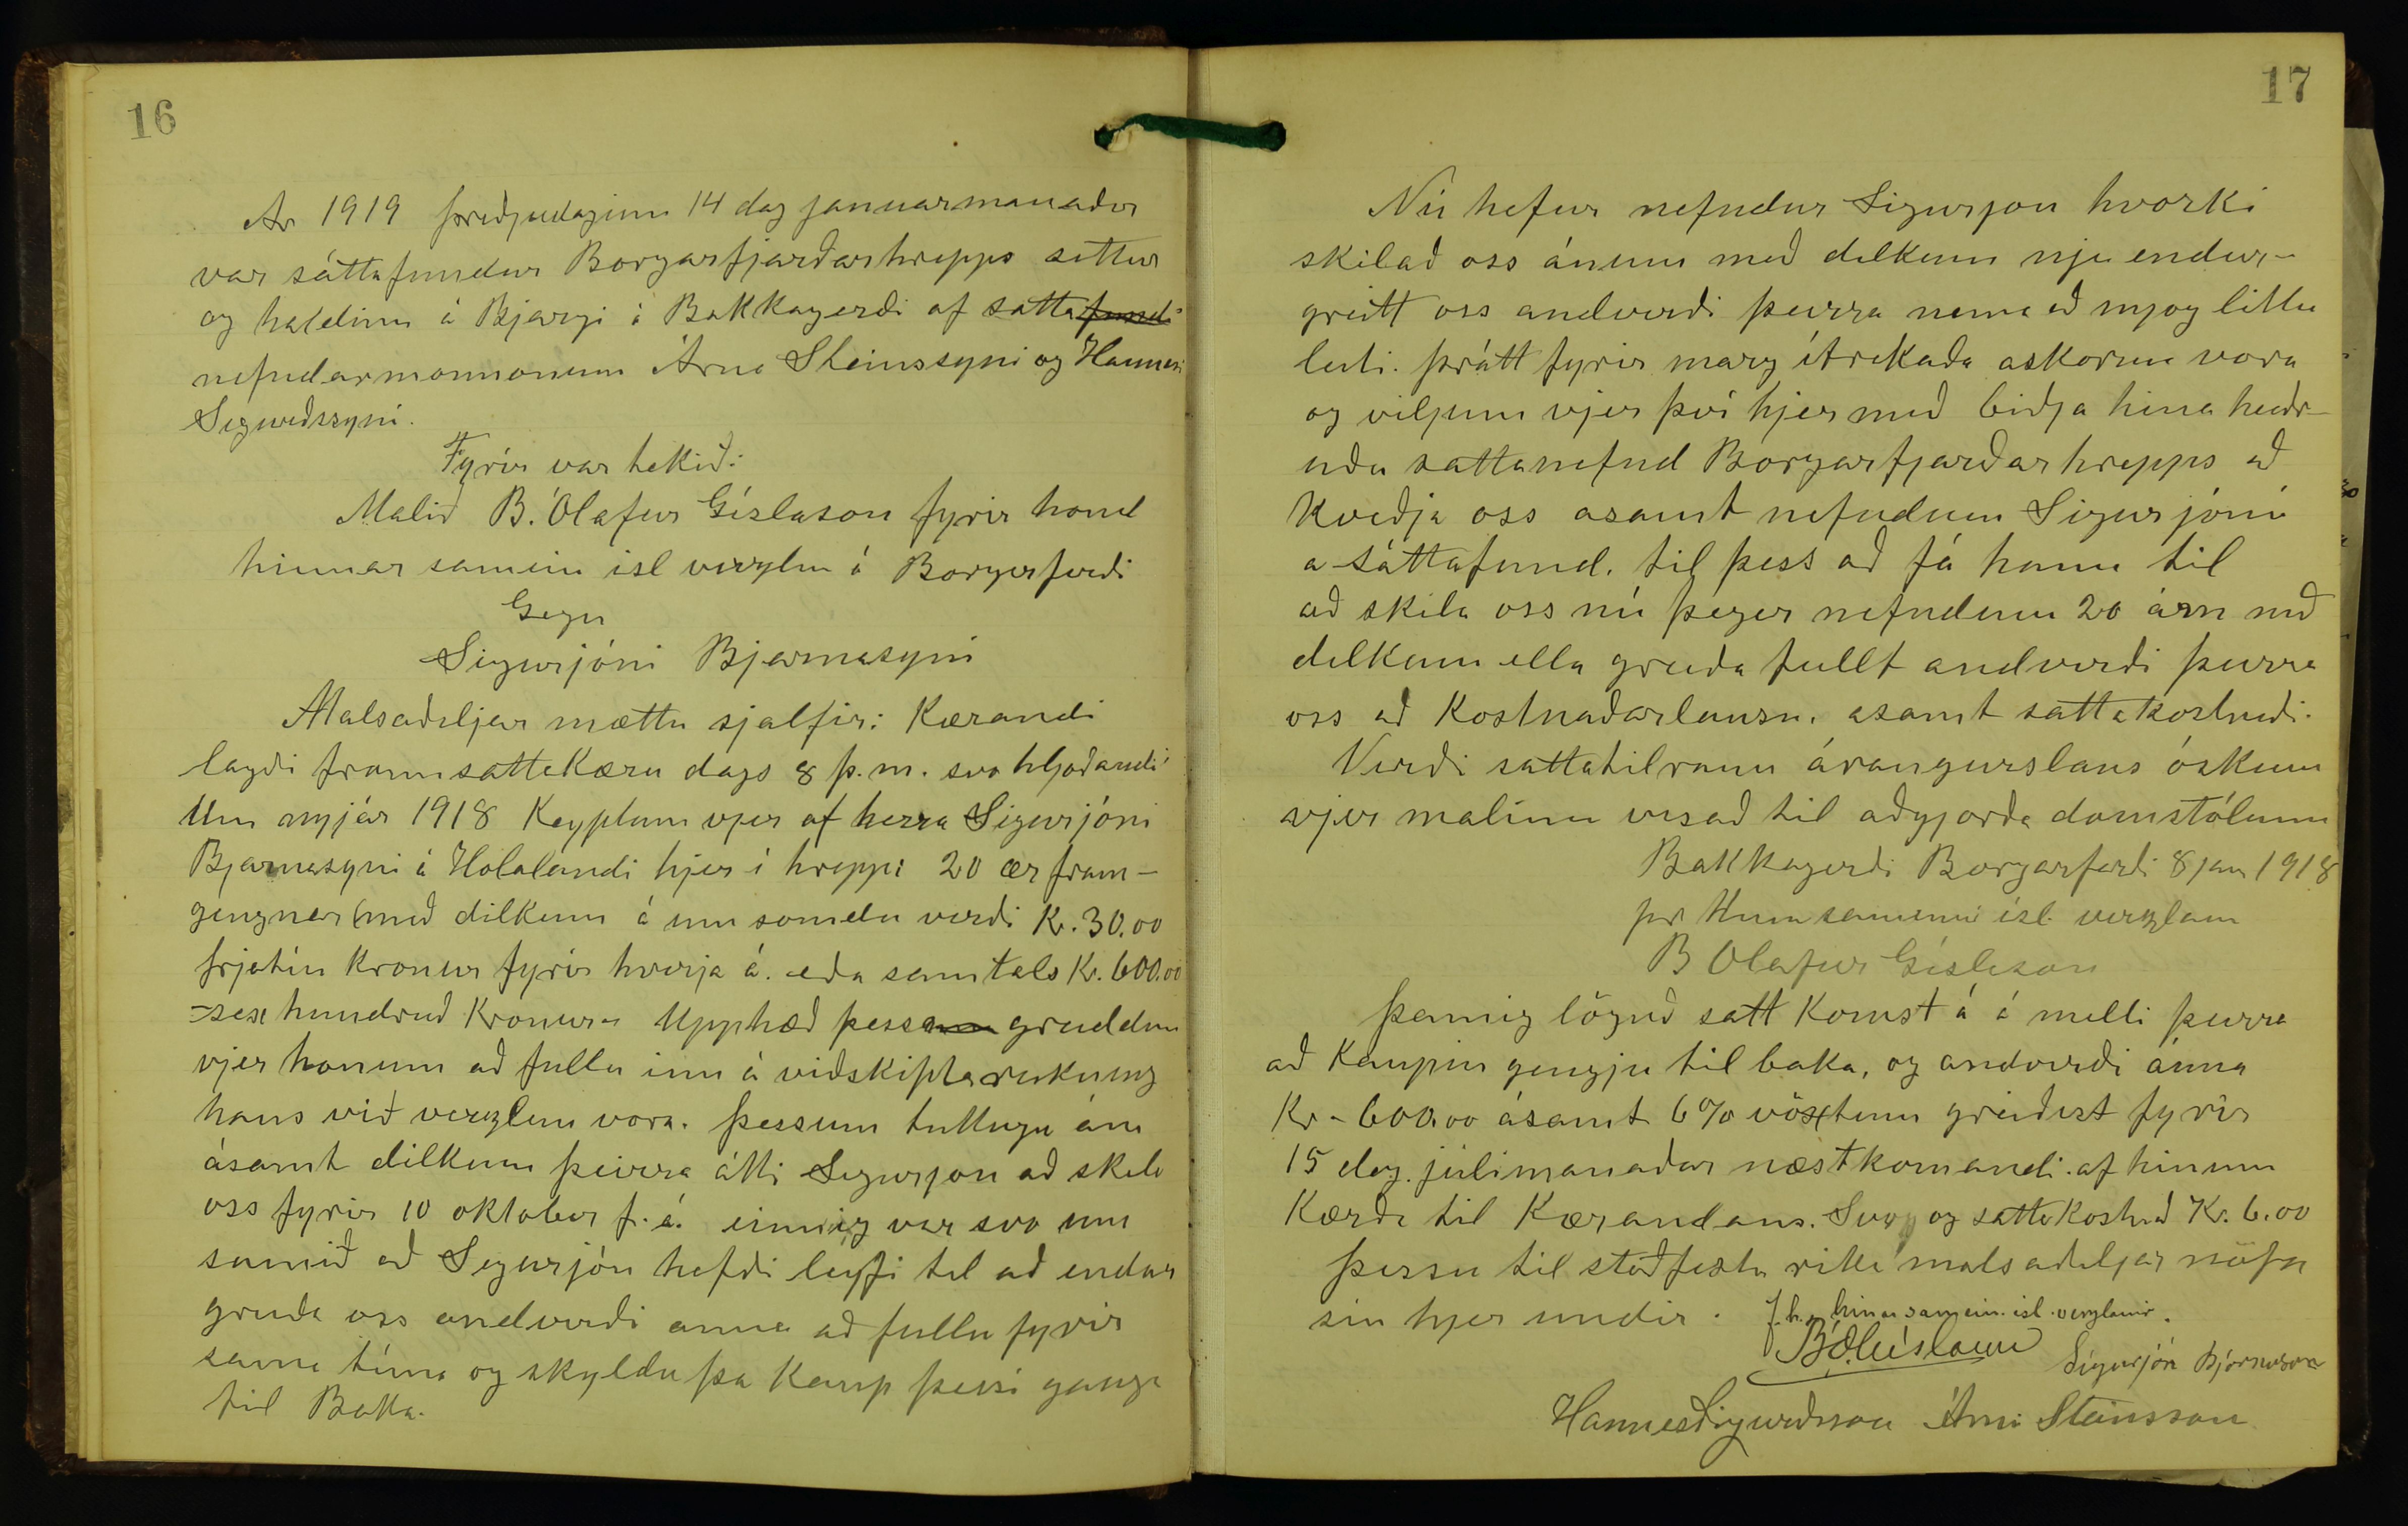 16
Ár 1919 þreðjudaginn 14 dag januarmanaðar
var sáttafundur Borgarfjarðarhrepps settur
og haldinn á Bjargi í Bakkagerði af sattafundi
nefndarmonnonum Árna Steinssyni og Hannesi
Sigurðssyni.
Fyrir var tekið:
Malið B. Ólafur Gíslason fyrir hond
hinnar samein isl verzlun á Borgarferði
Gegn
Sigurjóni Bjarnasyni
Malsaðiljar mættu sjalfir: Kærandi
lagði fram sattakæru dags 8 þ.m. svo hljoðandi
Um nyjár 1918 Keyptum vjer af herra Sigurjóni
Bjarnasyni á Hólalandi hjer í hreppi 20 ær fram-
gengnar með dilkum á um somdu verði Kr. 30.00
þrjatiu Kronur fyrir hverja á. eða samtals Kr. 600.00
-sex hundruð Kronur- Upphæð þessa greiddum
vjer honum að fullu inn á viðskiptareikning
hans við verzlun vora. Þessum tuttugu ám
ásamt dilkum þeirra átti Sigurjon að skila
oss fyrir 10 oktober f.á. einnig var svo um
samið að Sigurjón hefði leyfi til að endur
greiða oss andverði anna að fullu fyrir
sama tíma og skyldu þa Kaup þessi ganga
til Baka.
17
Nú hefur nefndur Sigurjon hvorki
skilað oss ánum með dilkum nje endur-
greitt oss andverði þeirra nema að mjog litlu
leiti. þrátt fyrir marg ítrekaða askorun vora
og viljum vjer því hjer með biðja hina heiðr-
uðu sattanefnd Borgarfjarðarhrepps að
Kveðja oss asamt nefndum Sigurjóni
a sáttafund. til þess að fá hann til
að skila oss nú þegar nefndum 20 ám með
dilkum ella greiða fullt andverði þeirra
oss að Kostnaðarlausu. asamt sattakostnaði.
Verði sattatilraun árangurslaus óskum
vjer malinu visað til aðgjorða domstólanna
Bakkagerði Borgarferði 8 jan 1918
pr Hinar sameinu ísl. verzlanir
B Olafur Gíslason
Þannig löguð satt Komst á á milli þeirra
að Kaupin gengju til baka, og andverði ánna
Kr- 600.00 ásamt 6% vöxtum greiðist fyrir
15 dag. júlimanaðar næstkomandi. af hinum
Kærða til Kærandans. Svo og sattakostnað Kr. 6.00
Þessu til staðfestu rita malsaðiljar nöfn
sin hjer undir. f.h. hinar samein. ísl. verzlanir.
B.Ó. Gíslason Sigurjón Bjarnason
Hannes Sigurðsson Árni Steinsson